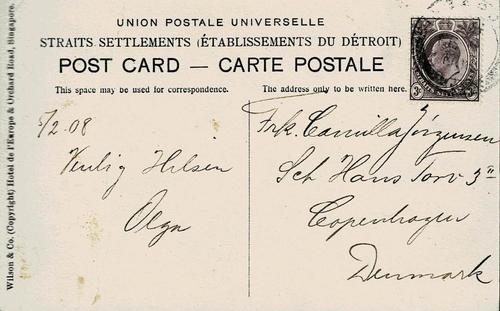 UNION POSTALE UNIVERSELLE
STRAITS SETTLEMENTS (ÉTABLISSEMENTS DU DÉTROIT)
POST CARD — CARTE POSTALE
This space may be used for correspondence.
The address only to be written here.
Wilson & Co. (Copyright) Hotel de l'Europe & Orchard Road, Singapore.
5/2-08
Venlig Hilsen
Olga
Frk. Camilla Jörgensen
Sct Hans Torv 3
Copenhagen
Denmark